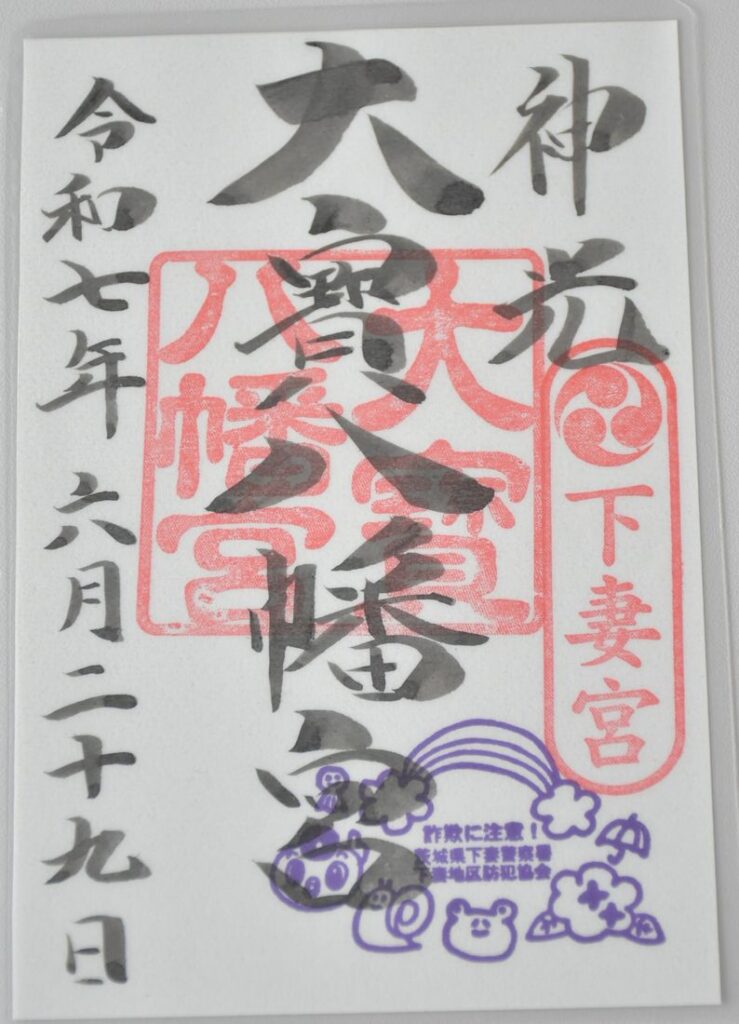 神光
下妻宮
大寳八幡宮
大寳
八幡宮
詐欺に注意！
茨城県下妻警察署
下妻地区防犯協会
令和七年六月二十九日